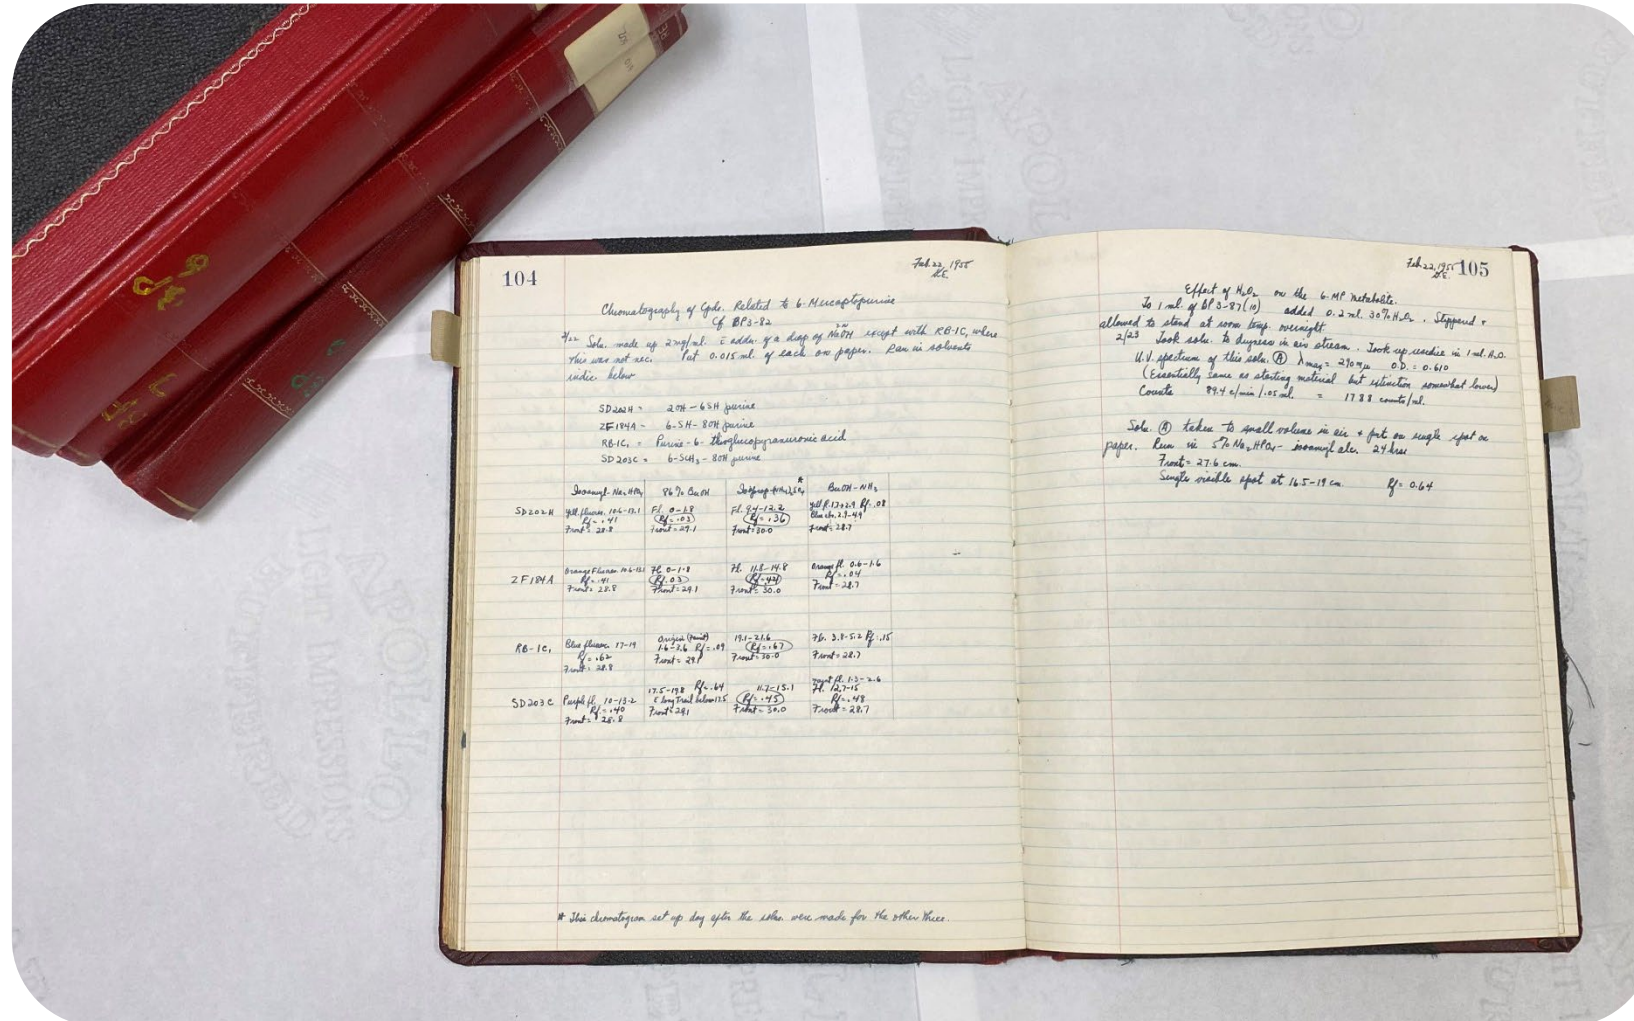 104
Feb. 22, 1955
Chromatography of Cpds. Related to 6-Mercaptopurine
Cf BP3-82
2/22 Solu. made up 2mg/ml. c̄ addn. of a drop of 2N NaOH except with RB-1C, where
this was not nec. Put 0.015 ml. of each on paper. Ran in solvents
indic. below
SD202H = 2OH-6SH purine
ZF184A = 6-SH-8OH purine
RB-1C, = Purine-6-thioglucopyranuronic acid
SD203C = 6-SCH3-8OH purine
Isoamyl-Na2HPO4 86% BuOH Isoprop-(NH4)2SO4* BuOH-NH3
SD202H
Yell. fluores. 10.6-13.1 Fl. 0-1.8 Fl. 9.4-12.2 Rf=.08
Rf=.41 Rf=.03 Rf=.36 2.9-4.9
Front=28.8 Front=29.1 Front=30.0 Front=28.7
ZF184A
Orange Fluores. Fl. 0-1.8 Fl. 11.8-14.8 Orange fl. 0.6-1.6
Rf=.41 Rf.03 Rf=.44 Rf=.04
Front=28.8 Front=29.1 Front=30.0 28.7
RB-1C,
Blue fluores. 17-19 Origin (Faint) 19.1-21.6 Fl. 3.8-5.2 Rf=.15
Rf=.62 1.6-3.6 Rf=.09 Rf=.67
Front=28.8 Front=29.1 Front=30.0 Front=28.7
SD203C
Purple fl. 10-13.2 17.5-19.8 Rf=.64 11.7-15.1 Faint fl. 1.3-2.6
Rf=.40 c̄ long Trail below 17.5 Rf=.45 Fl. 12.7-15
Front=28.8 Front=29.1 Front=30.0 Rf=.48
Front=28.7
* This chromatogram set up day after the solns. were made for the other three.
Feb. 22, 1955
G.E.
105
Effect of H2O2 on the 6-MP Metabolite.
To 1 ml. of BP3-87(10) added 0.2 ml. 30% H2O2. Stoppered +
allowed to stand at room temp. overnight.
2/23 Took solu. to dryness in air stream. Took up residue in 1 ml. H2O.
U.V. spectrum of this solu. Ⓐ λmax = 290 mμ O.D. = 0.610
(Essentially same as starting material but extinction somewhat lower)
Counts 89.4 c/min/.05 ml. = 1788 counts/ml.
Solu. Ⓐ taken to small volume in air + put on single spot on
paper. Run in 5% Na2HPO4 - isoamyl alc. 24 hrs
Front = 27.6 cm.
Single visible spot at 16.5-19 cm. Rf = 0.64
APOLLO